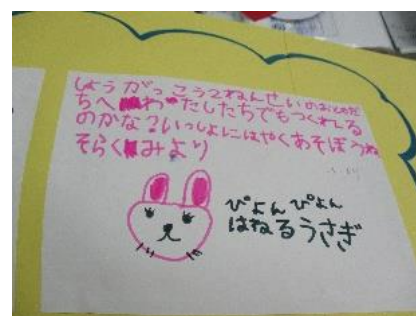 しょうがっこう2ねんせいのおともだ
ちへ わたしたちでもつくれる
のかな？いっしょにはやくあそぼうね
そらくみより
ぴょんぴょん
はねるうさぎ